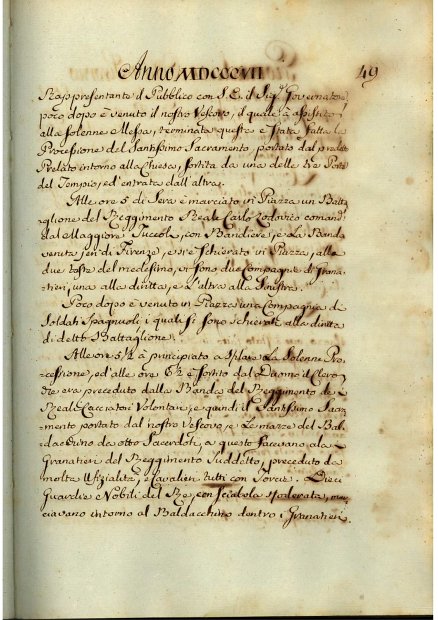 Anno MDCCCVII 49
Rappresentante il Pubblico con S. E. il Sigr. Governatore,
poco dopo è venuto il nostro Vescovo, il quale à assistito
alla solenne Messa, terminata questa è stata fatta la
Processione del Santissimo Sacramento, portato dal predetto
Prelato intorno alla Chiesa, sortita da una delle tre Porte
del Tempio, ed entrata dall'altra.
Alle ore 5 di Sera è marciato in Piazza un Batta-
glione del Reggimento Reale Carlo Lodovico comand:
dal Maggiore con Bandiere, e la Banda
venuta jeri di Firenze, e si è schierato in Piazza, alle
due teste del medesimo, vi sono due Compagnie di Grana-
tieri, una alla diritta, e l'altra alla Sinistra.
Poco dopo è venuto in Piazza una Compagnia di
Soldati Spagnuoli i quali si sono schierati alla diritta
di detto Battaglione.
Alle ore 5½ à principiato a sfilare la solenne Pro-
cessione, ed alle ore 6½ è sortito dal Duomo il Clero
che era preceduto dalla Banda del Reggimento de
Reale Cacciatori Volontari, e quindi il Santissimo Sacra-
mento portato dal nostro Vescovo, e le mazze del Bal-
dacchino da otto Sacerdoti, a questo facevano ala i
Granatieri del Reggimento suddetto, preceduto da
molta Ufizialità, e Cavalieri tutti con Torcie. Dieci
Guardie Nobili del Re, con Sciabola sfoderata, mar-
ciavano intorno al Baldacchino dentro i Granatieri.